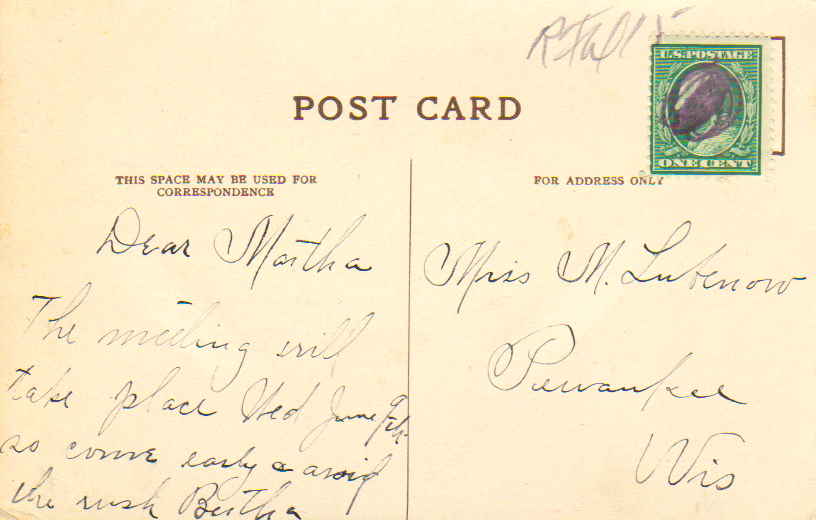 U.S. POSTAGE
ONE CENT
POST CARD
THIS SPACE MAY BE USED FOR
CORRESPONDENCE
Dear Martha
The meeting will
take place Wed June 9th
so come early & avoid
the rush Bertha
FOR ADDRESS ONLY
Miss M. Lubenow
Pewaukee
Wis